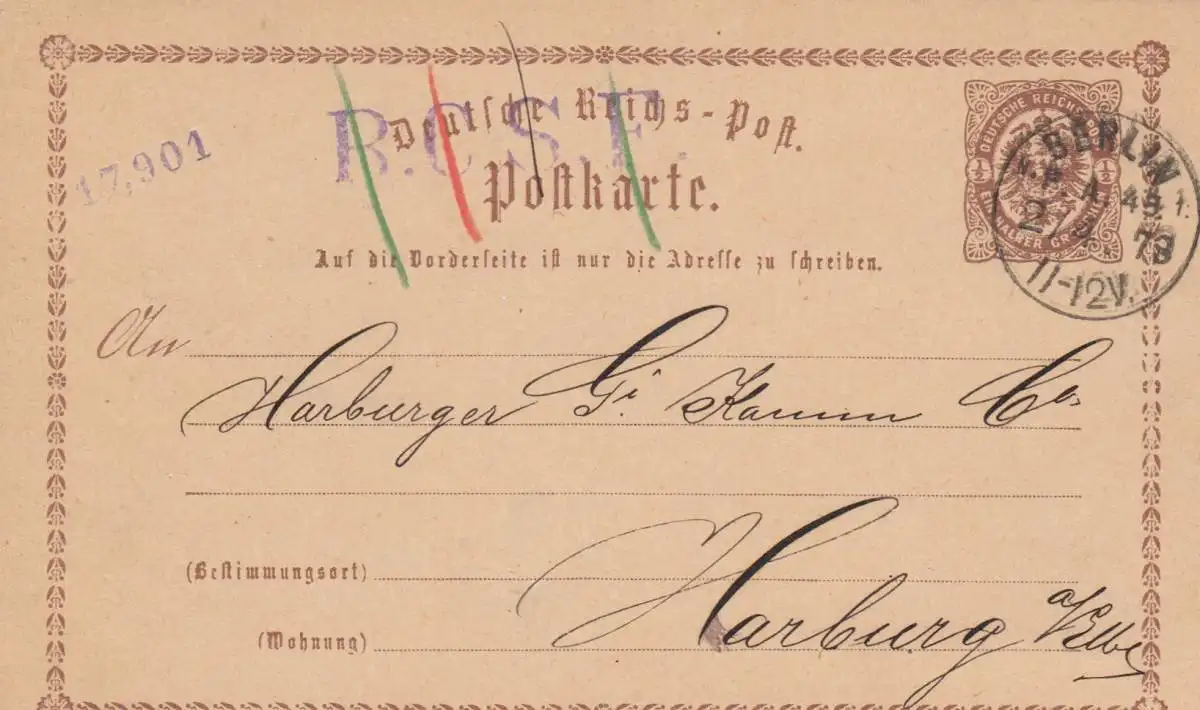 Deutsche Reichs-Post.
B.C.S.F.
17,901
Postkarte.
Auf die Vorderseite ist nur die Adresse zu schreiben.
DEUTSCHE REICHSPOST
½ ½
EIN HALBER GROSCHEN
BERLIN
2 73
11-12V.
An
Harburger Gi Kamm Co
(Bestimmungsort)
Harburg a/Elbe
(Wohnung)